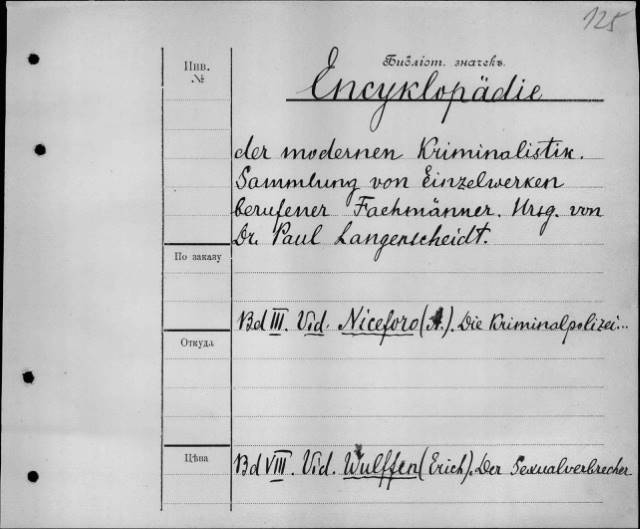 125
Инв.
№
Библіот. значекъ.
Encyklopädie
der modernen Kriminalistik.
Sammlung von Einzelwerken
berufener Fachmänner. Hrsg. von
Dr. Paul Langenscheidt.
По заказу
Bd III. Vid. Niceforo (A). Die Kriminalpolizei...
Откуда
Цѣна
Bd VIII. Vid. Wulffen (Erich). Der Sexualverbrecher